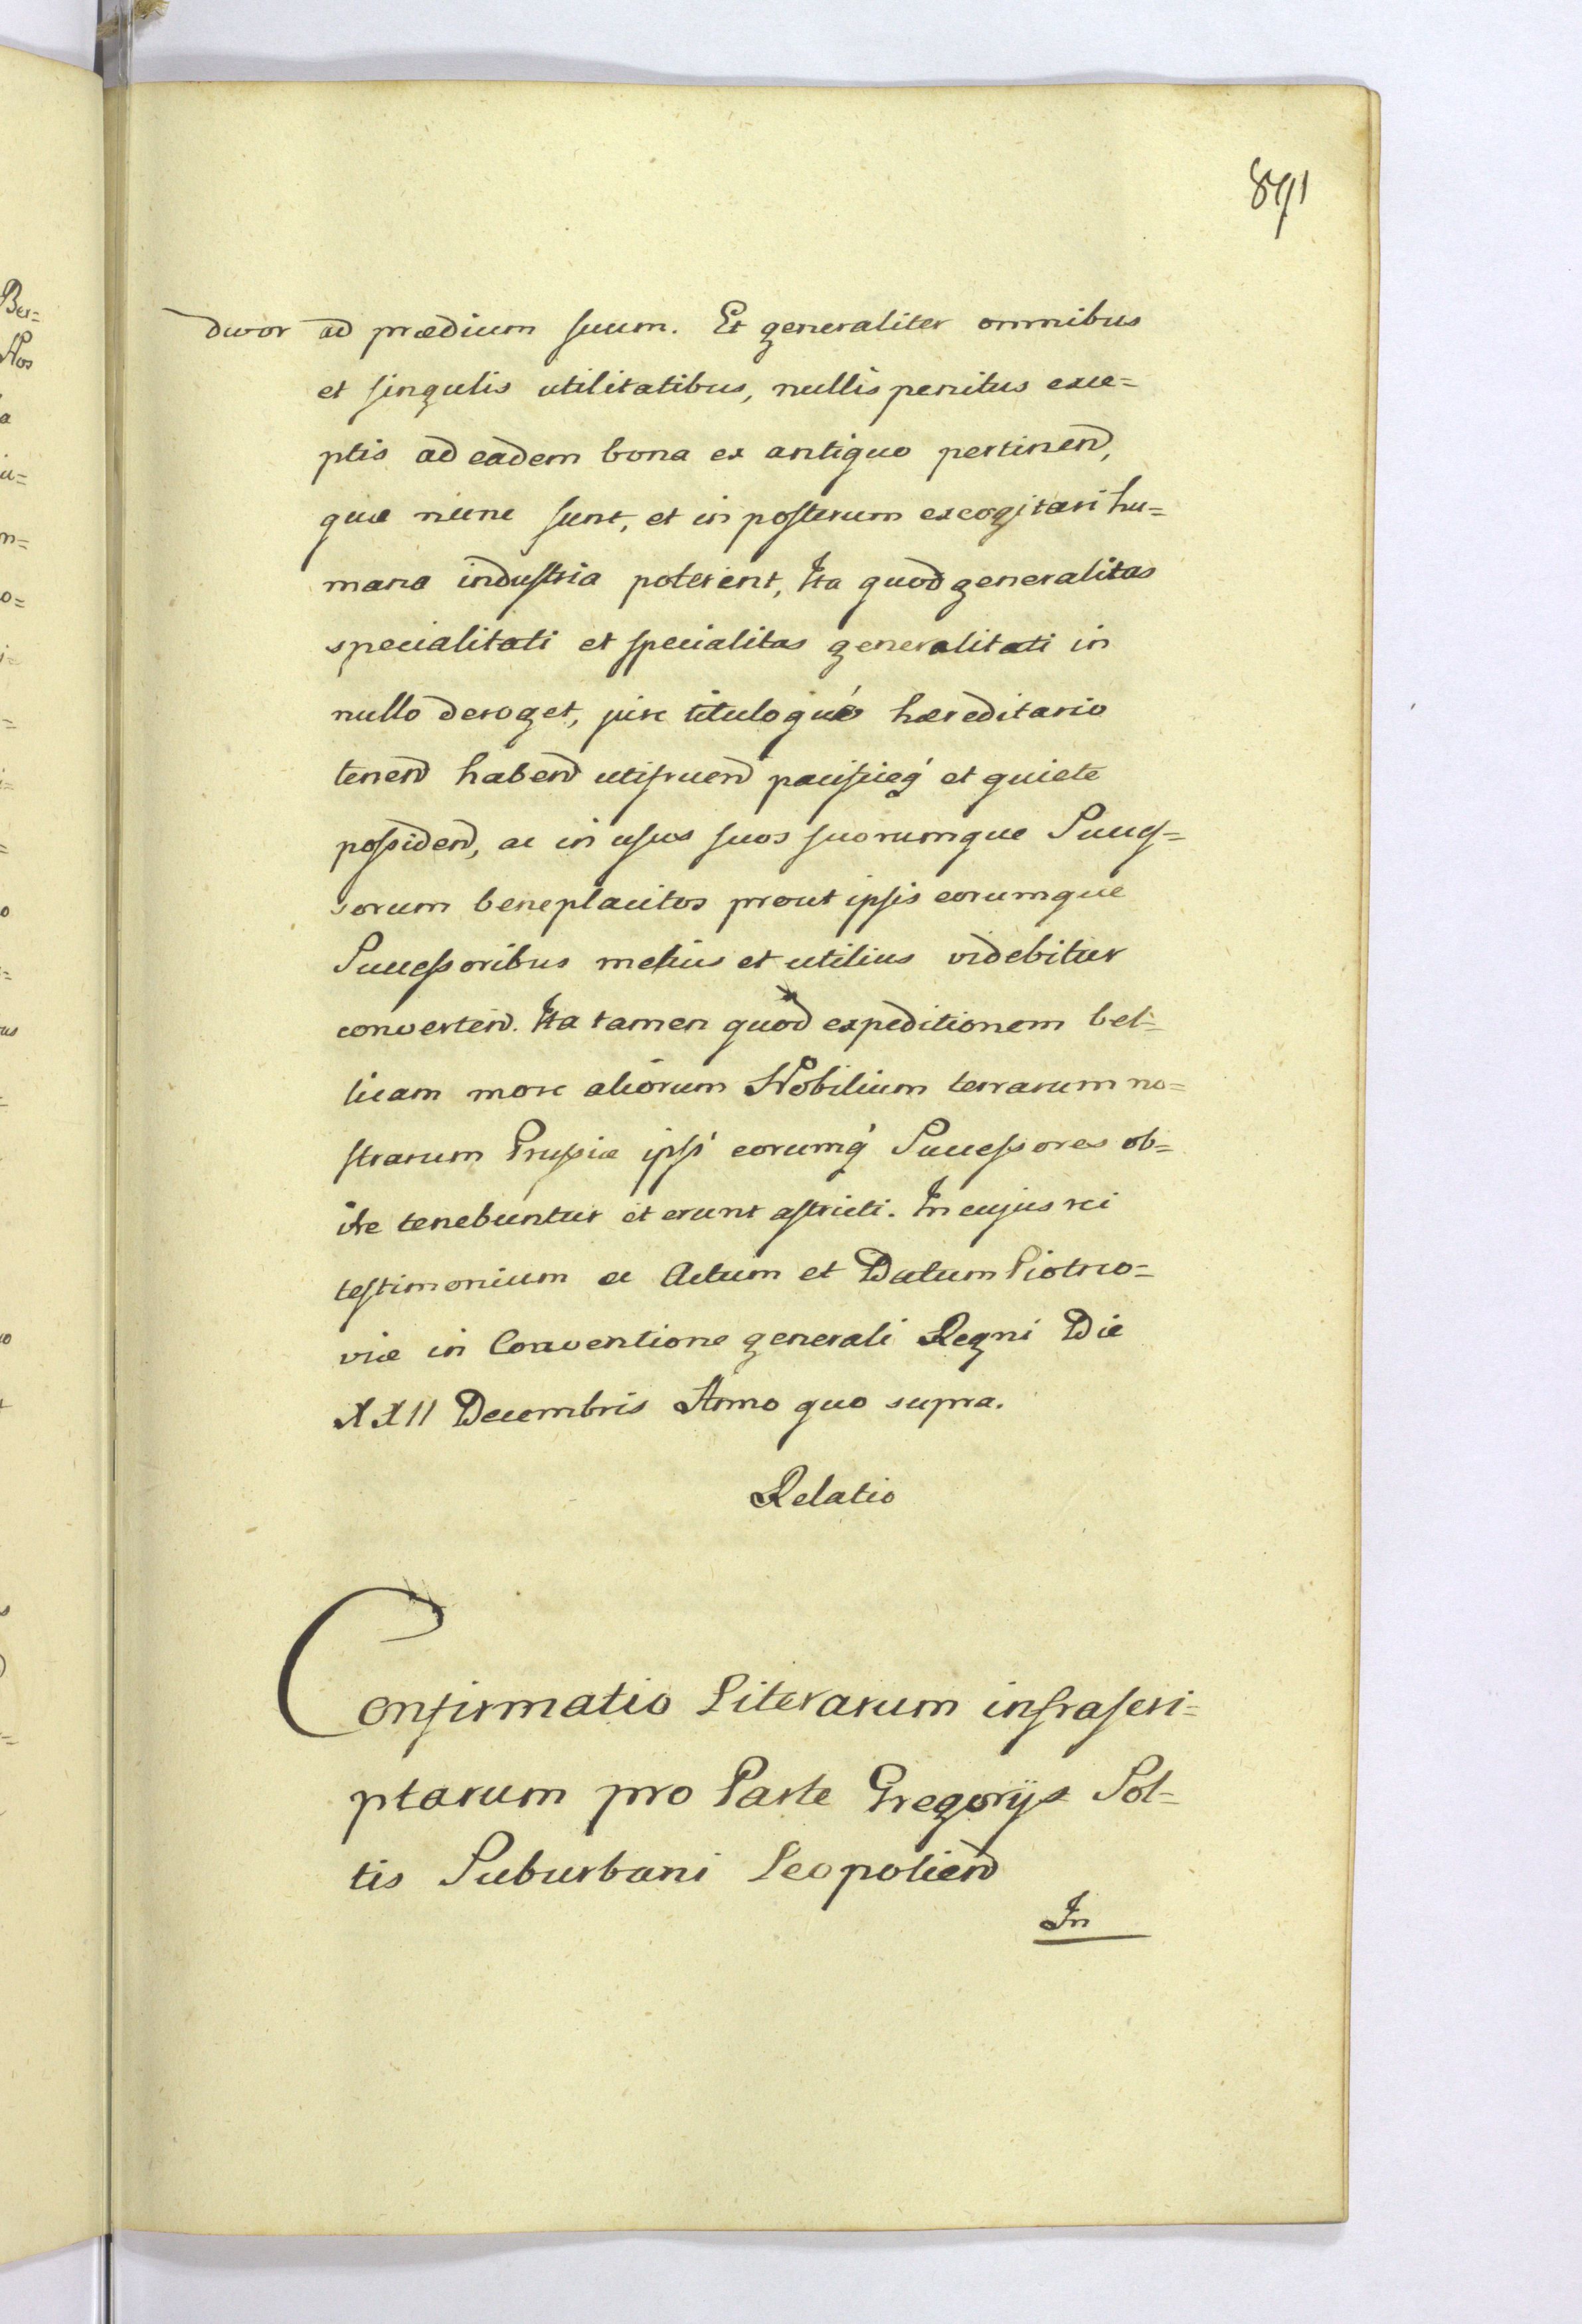 891
dwor ad prædium suum. Et generaliter omnibus
et singulis utilitatibus, nullis penitus exce=
ptis ad eadem bona ex antiquo pertinend,
quæ nunc sunt, et in posterum excogitari hu=
mana industria poterint, Ita quod generalitas
specialitati et specialitas generalitati in
nullo deroget, jure tituloque hæreditario
tenend habend utifruend pacificeq́ et quiete
possidend, ac in usus suos suorumque Succes=
sorum beneplacitos prout ipsis eorumque
Successoribus melius et utilius videbitur
convertend. Ita tamen quod expeditionem bel=
licam more aliorum Nobilium terrarum no=
strarum Prussiæ ipsi eorumq́ Successores ob=
ire tenebuntur et erunt astricti. In cujus rei
testimonium ac Actum et Datum Piotrco=
viæ in Conventione generali Regni Die
XXII Decembris Anno quo supra.
Relatio
Confirmatio Literarum infrascri=
ptarum pro Parte Gregorys Sol=
tis Suburbani Leopoliend
In
Ber=
Nos